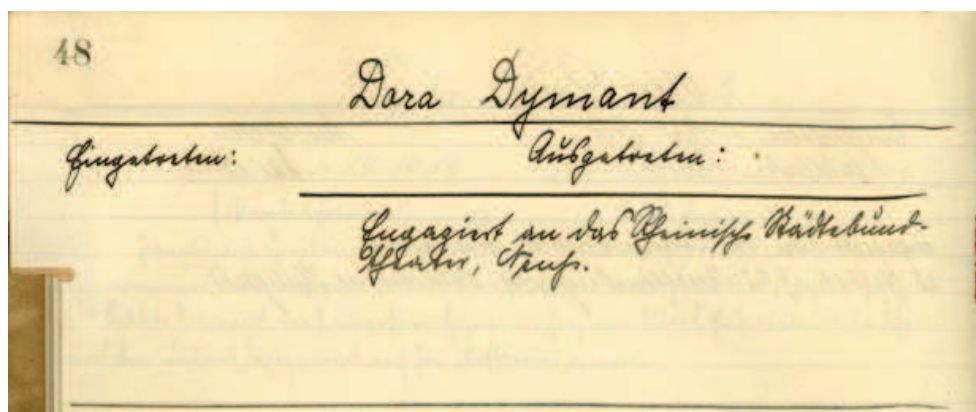 48
Dora Dymant
Eingetreten: Ausgetreten:
Engagiert an das Rheinische Städtebund-
theater, Neuß.